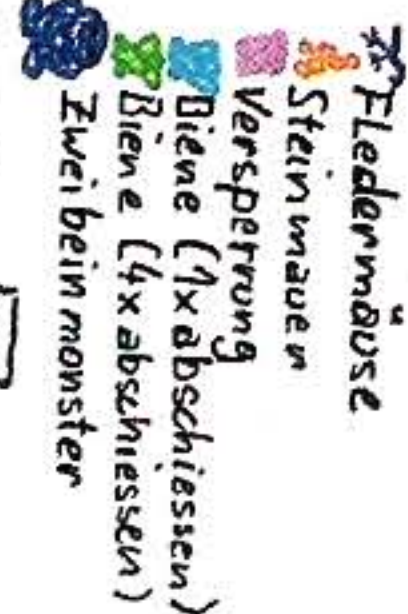 Fledermäuse
Steinmauern
Versperrung
Biene (1x abschiessen)
Biene (4x abschiessen)
Zweibeinmonster